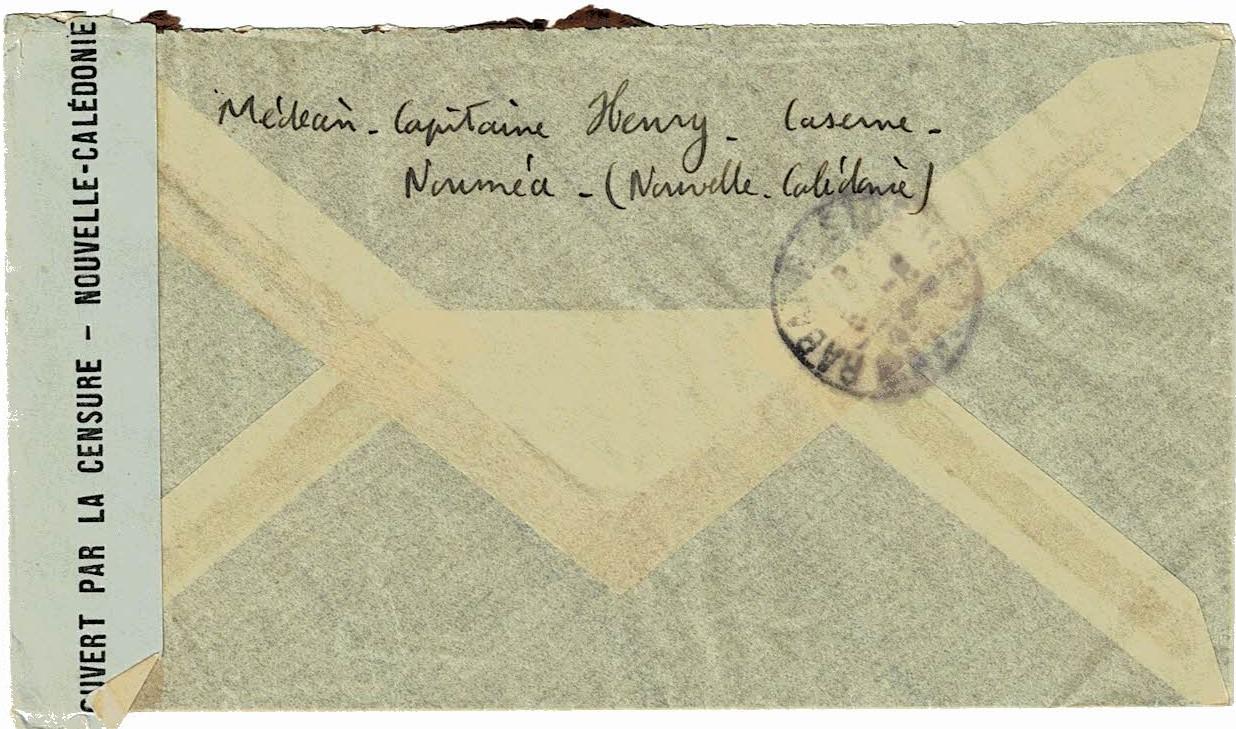 OUVERT PAR LA CENSURE - NOUVELLE-CALÉDONIE
Médecin - Capitaine Henry - Caserne -
Nouméa - (Nouvelle-Calédonie)